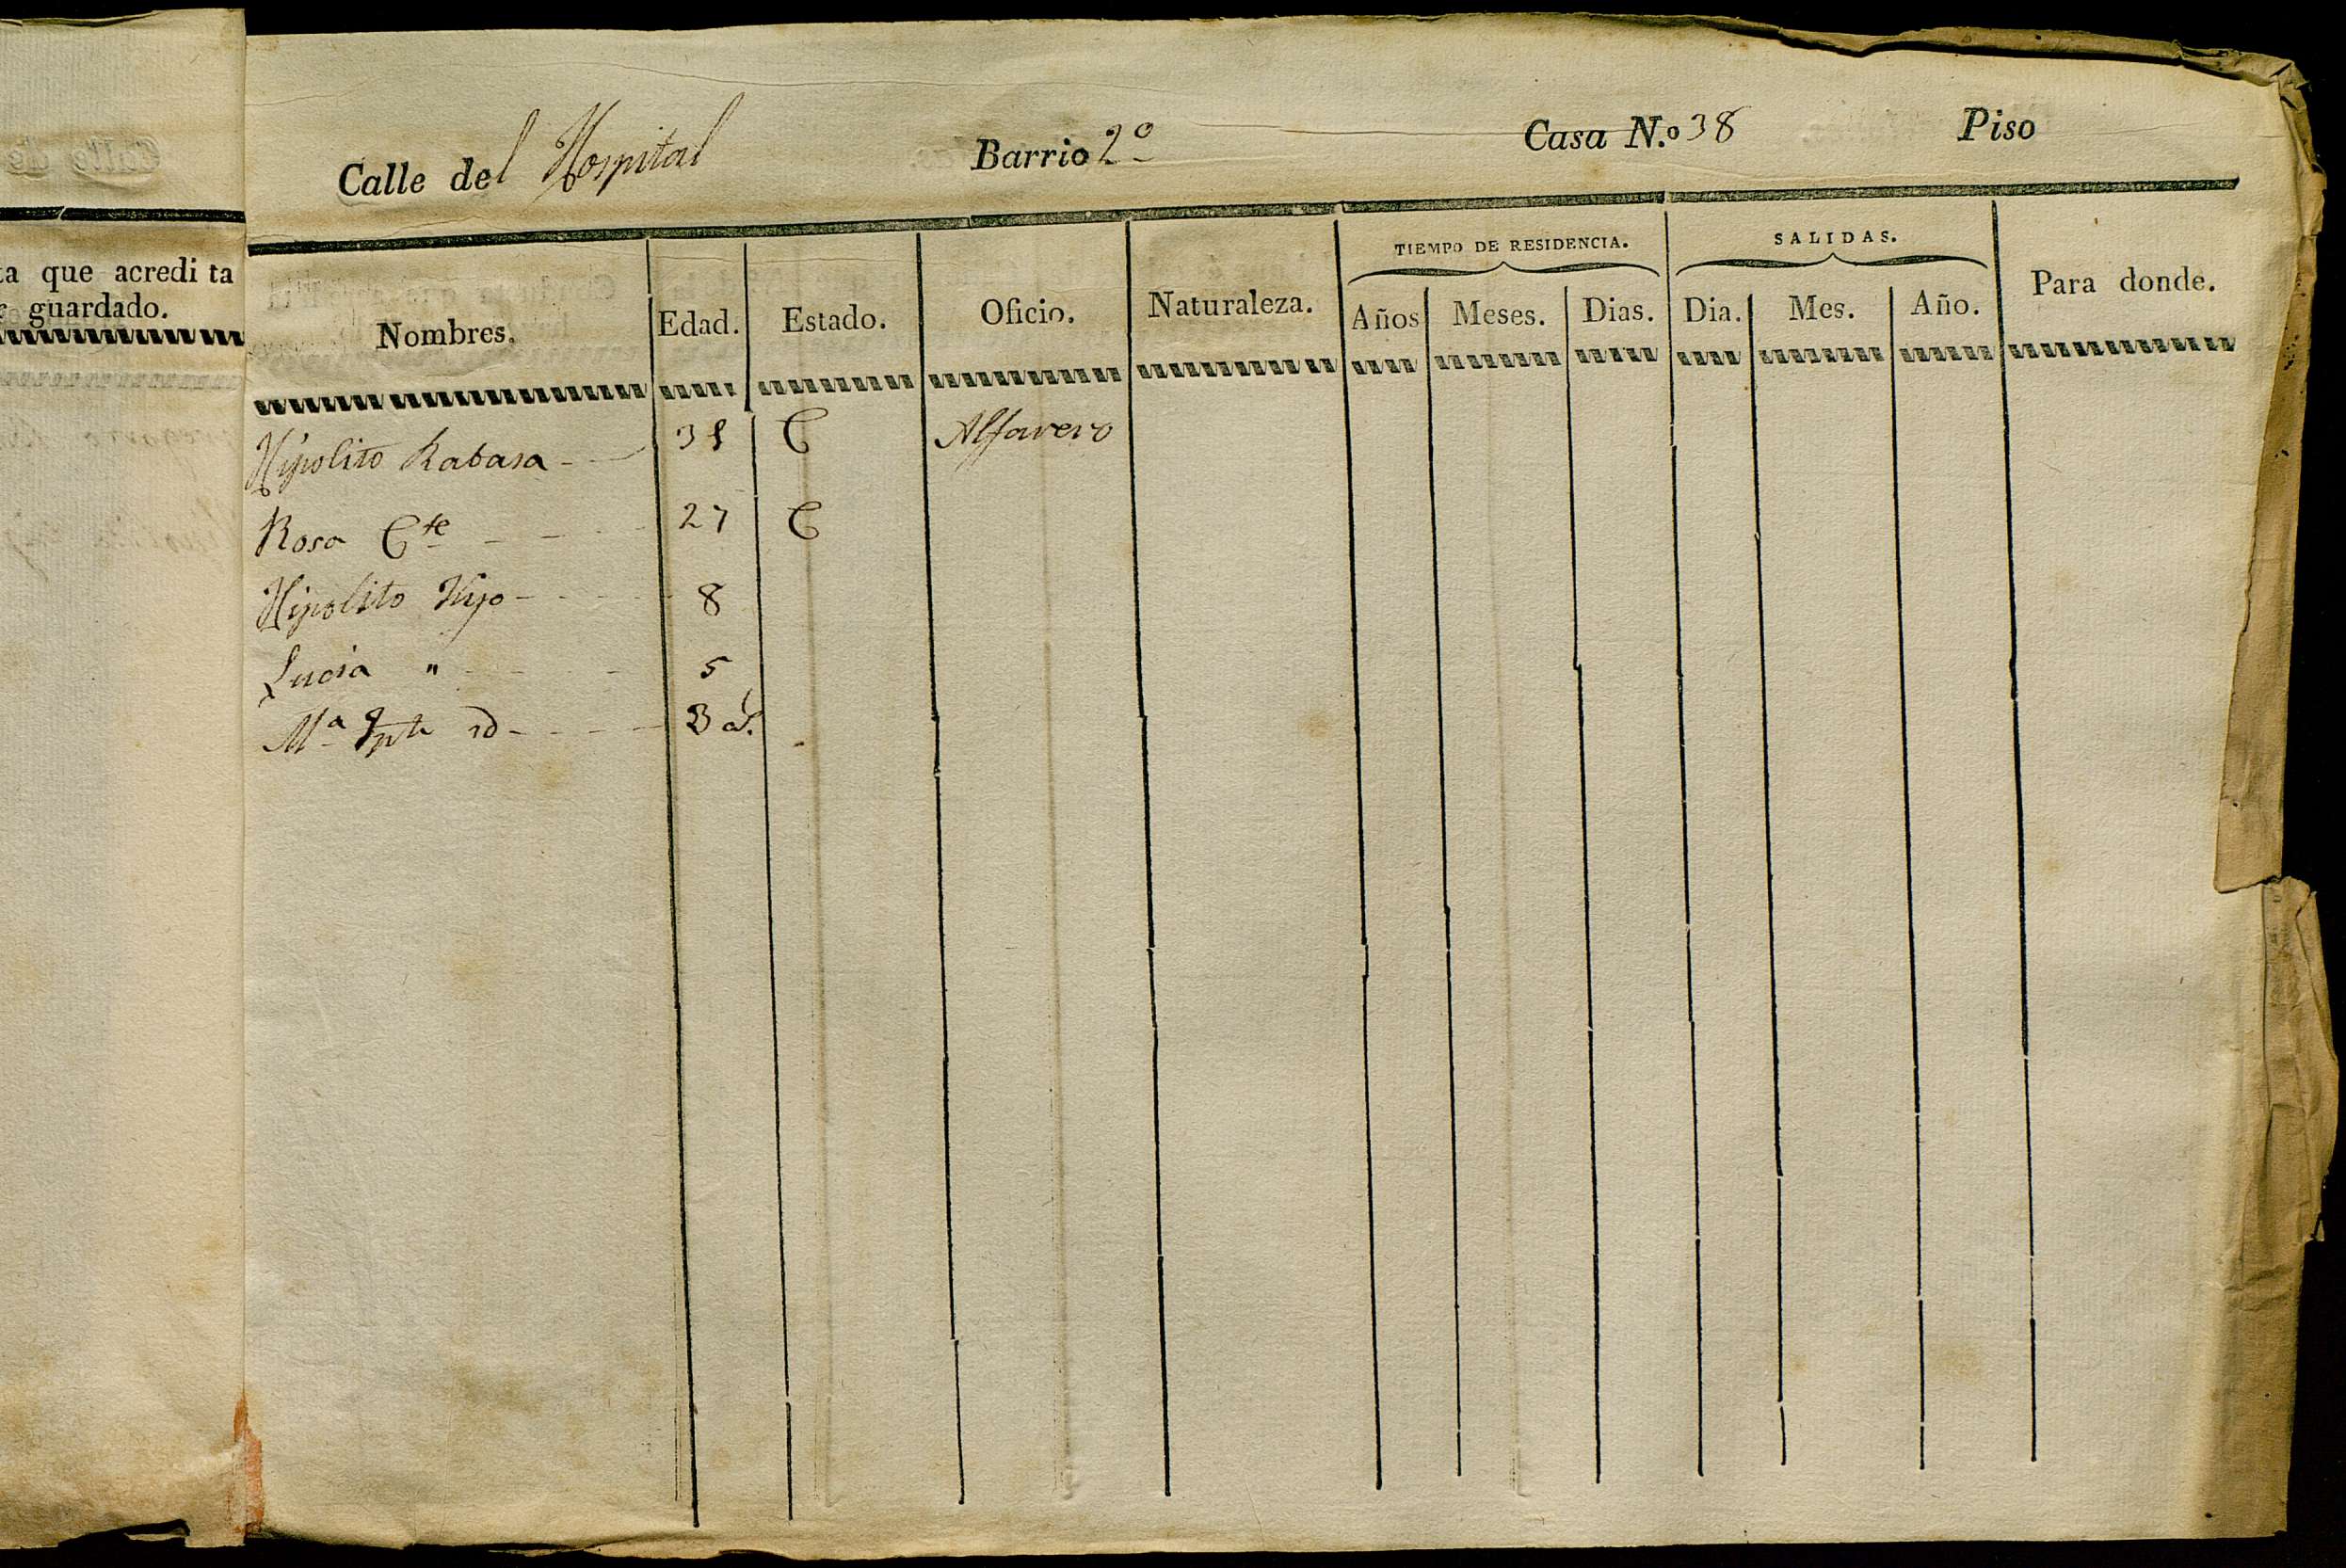 ta que acredi ta
r guardado.
Calle del Hospital Barrio 2º Casa N.º 38 Piso
TIEMPO DE RESIDENCIA. SALIDAS.
Nombres. Edad. Estado. Oficio. Naturaleza. Años Meses. Dias. Dia. Mes. Año. Para donde.
Hipolito Rabasa - - C Alfarero
Rosa Cte - - - 27 C
Hipolito Hijo - - - - 8
Lucia " - - - 5
Mª id - - - - 3